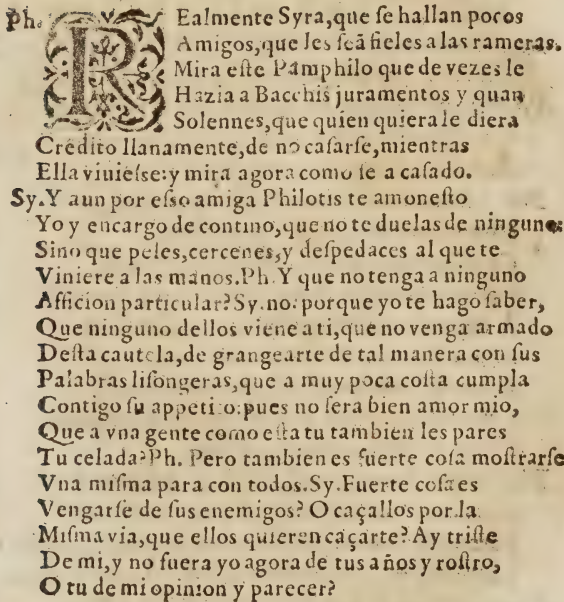 Ph. REalmente Syra, que ſe hallan pocos
Amigos, que les ſeã fieles a las rameras.
Mira eſte Pamphilo que de vezes le
Hazia a Bacchis juramentos y quan
Solennes, que quien quiera le diera
Credito llanamente, de no caſarſe, mientras
Ella viuieſse: y mira agora como ſe a caſado.
Sy. Y aun por eſso amiga Philotis te amoneſto
Yo y encargo de contino, que no te duelas de ninguno:
Sino que peles, cercenes, y deſpedaces al que te
Viniere a las manos. Ph. Y que no tenga a ninguno
Afficion particular? Sy. no: porque yo te hago ſaber,
Que ninguno dellos viene a ti, que no venga armado
Deſta cautela, de grangearte de tal manera con ſus
Palabras liſongeras, que a muy poca coſta cumpla
Contigo ſu appetito: pues no ſera bien amor mio,
Que a vna gente como eſta tu tambien les pares
Tu celada? Ph. Pero tambien es fuerte coſa moſtrarſe
Vna miſma para con todos. Sy. Fuerte coſa es
Vengarſe de ſus enemigos? O caçallos por la
Miſma via, que ellos quieren caçarte? Ay triſte
De mi, y no fuera yo agora de tus años y roſtro,
O tu de mi opinion y parecer?